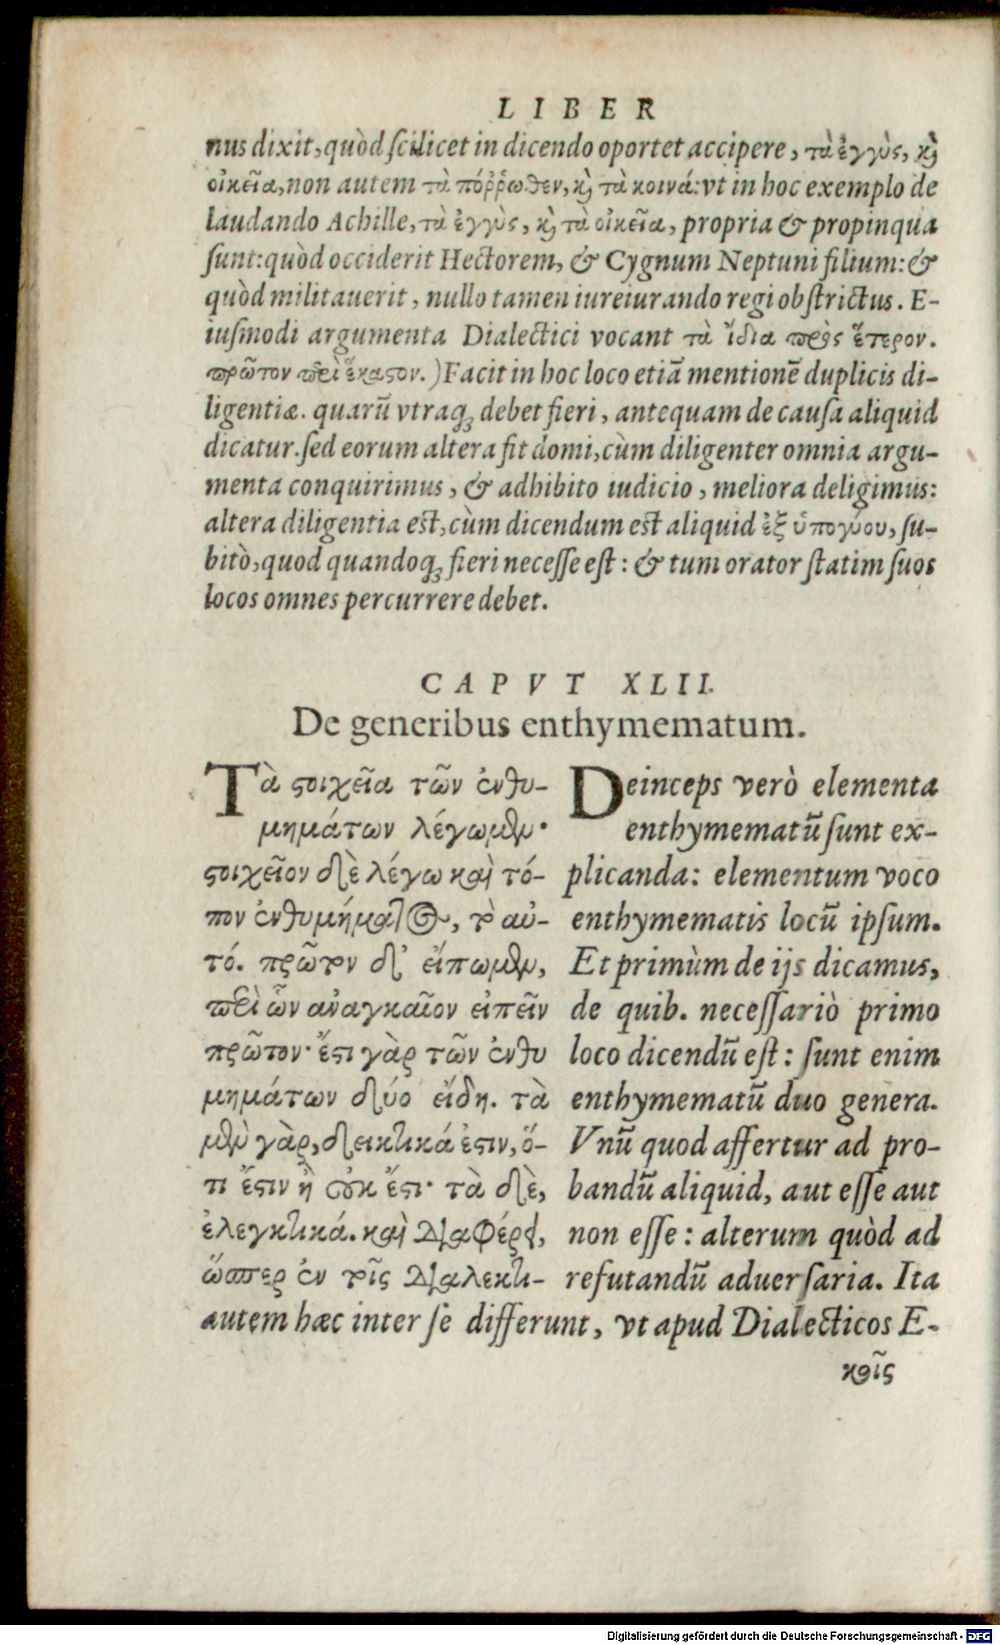 LIBER
nus dixit, quòd scilicet in dicendo oportet accipere, τὰ ἐγγὺς, καὶ
οἰκεῖα, non autem τὰ πόῤῥωθεν, καὶ τὰ κοινά: vt in hoc exemplo de
laudando Achille, τὰ ἐγγὺς, καὶ τὰ οἰκεῖα, propria & propinqua
sunt: quòd occiderit Hectorem, & Cygnum Neptuni filium: &
quòd militauerit, nullo tamen iureiurando regi obstrictus. E-
iusmodi argumenta Dialectici vocant τὰ ἴδια πρὸς ἕτερον.
πρῶτον περὶ ἕκαστον.) Facit in hoc loco etiã mentionẽ duplicis di-
ligentiæ. quarũ vtraq; debet fieri, antequam de causa aliquid
dicatur. sed eorum altera fit domi, cùm diligenter omnia argu-
menta conquirimus, & adhibito iudicio, meliora deligimus:
altera diligentia est, cùm dicendum est aliquid ἐξ ὑπογύου, su-
bitò, quod quandoq; fieri necesse est: & tum orator statim suos
locos omnes percurrere debet.
CAPVT XLII.
De generibus enthymematum.
Τὰ στοιχεῖα τῶν ἐνθυ-
μημάτων λέγωμεν·
στοιχεῖον δὲ λέγω καὶ τό-
πον ἐνθυμήματος, τὸ αὐ-
τό. πρῶτον δ' εἴπωμεν,
περὶ ὧν ἀναγκαῖον εἰπεῖν
πρῶτον· ἔστι γὰρ τῶν ἐνθυ
μημάτων δύο εἴδη. τὰ
μὲν γὰρ, δεικτικά ἐστιν, ὅ-
τι ἔστιν ἢ οὐκ ἔστι· τὰ δὲ,
ἐλεγκτικά. καὶ διαφέρει,
ὥσπερ ἐν τοῖς διαλεκτι-
Deinceps verò elementa
enthymematũ sunt ex-
plicanda: elementum voco
enthymematis locũ ipsum.
Et primùm de ijs dicamus,
de quib. necessariò primo
loco dicendũ est: sunt enim
enthymematũ duo genera.
Vnũ quod affertur ad pro-
bandũ aliquid, aut esse aut
non esse: alterum quòd ad
refutandũ aduersaria. Ita
autem hæc inter sè differunt, vt apud Dialecticos E-
κοῖς
Digitalisierung gefördert durch die Deutsche Forschungsgemeinschaft - DFG